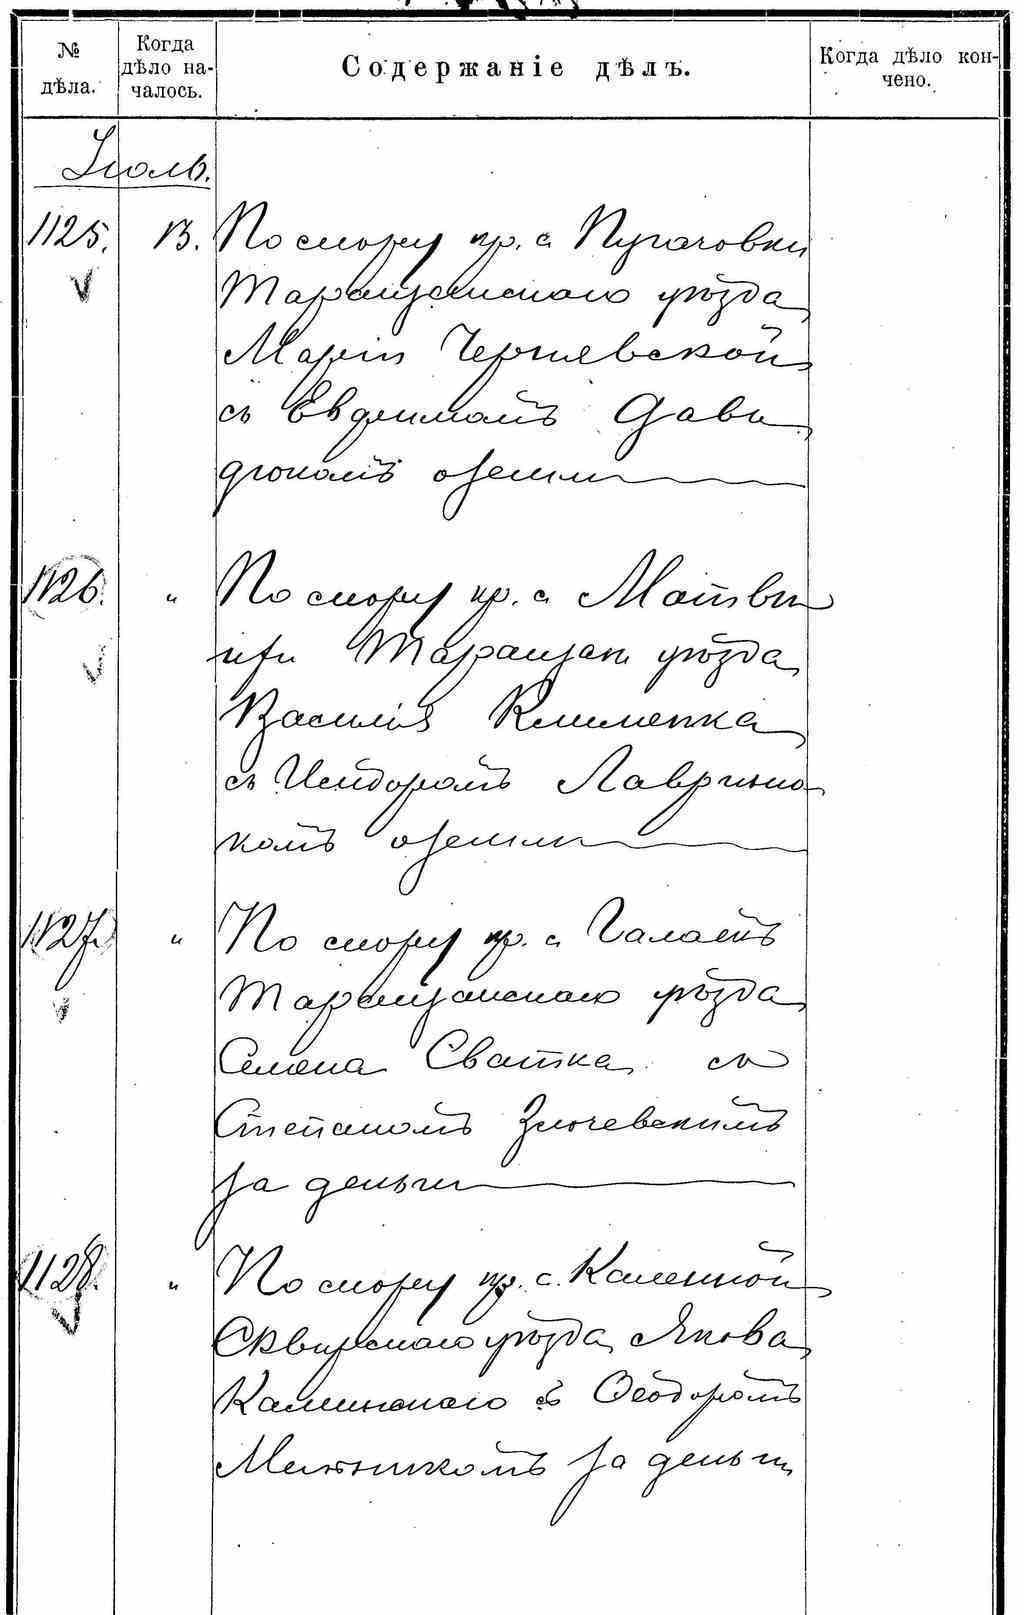 № дѣла.
Когда дѣло на-
чалось.
Содержаніе дѣлъ.
Когда дѣло кон-
чено.
Іюль.
1125. 13. По спору кр. с. Пугачовки
Таращанскаго уѣзда
Маріи Чернявской
съ Евдокимомъ Дави
дюкомъ о земли
1126. " По спору кр. с. Матви
ихи Таращан. уѣзда
Василія Клименка
съ Исидоромъ Лаврине
комъ о земли
1127. " По спору кр. с.
Таращанскаго уѣзда
Семена Сватка съ
Степаномъ
за деньги
1128. " По спору кр. с. Каменной
Сквирскаго уѣзда Якова
Каминскаго съ Ѳеодоромъ
Мельникомъ за деньги